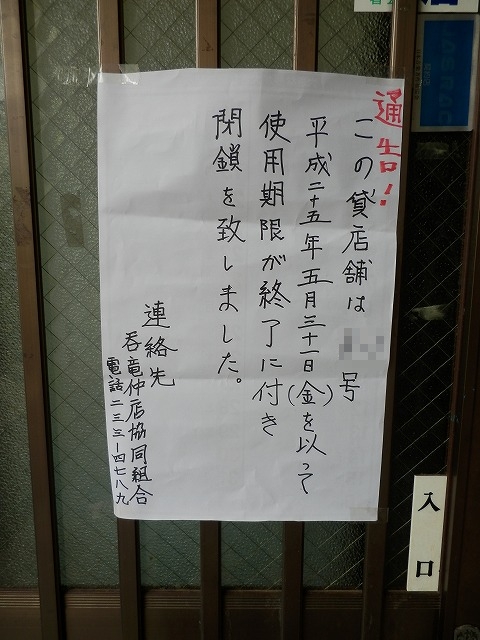 通告!
この貸店舗は 号
平成二十五年五月三十一日(金)を以って
使用期限が終了に付き
閉鎖を致しました。
連絡先
呑竜仲店協同組合
電話二三三-四七八九
入口